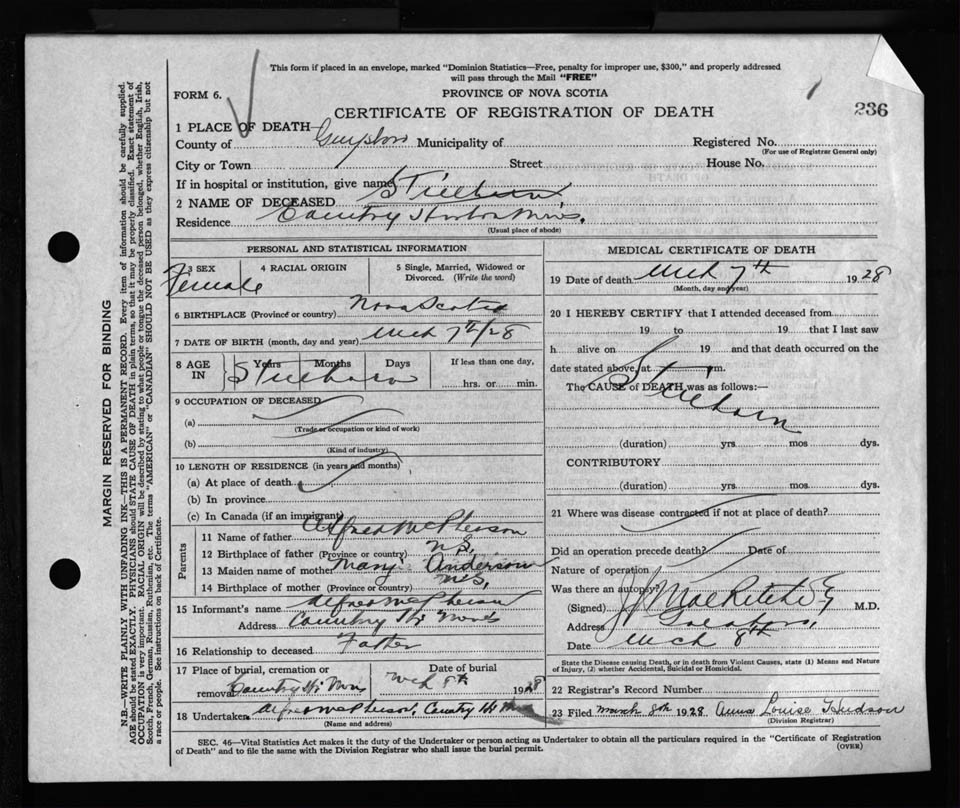 This form if placed in an envelope, marked "Dominion Statistics—Free, penalty for improper use, $300," and properly addressed
will pass through the Mail "FREE"
FORM 6.
PROVINCE OF NOVA SCOTIA
236
CERTIFICATE OF REGISTRATION OF DEATH
1 PLACE OF DEATH
County of Guysboro Municipality of Registered No.
(For use of Registrar General only)
City or Town Street House No.
If in hospital or institution, give name
2 NAME OF DECEASED Stillborn
Residence Country Harbor Mines.
(Usual place of abode)
PERSONAL AND STATISTICAL INFORMATION
3 SEX 4 RACIAL ORIGIN 5 Single, Married, Widowed or
Divorced. (Write the word)
Female
6 BIRTHPLACE (Province or country) Nova Scotia
7 DATE OF BIRTH (month, day and year) Mch 7th/28
8 AGE IN Years Months Days If less than one day,
Stillborn hrs. or min.
9 OCCUPATION OF DECEASED
(a)
(Trade or occupation or kind of work)
(b)
(Kind of industry)
10 LENGTH OF RESIDENCE (in years and months)
(a) At place of death
(b) In province
(c) In Canada (if an immigrant)
Parents
11 Name of father Alfred McPherson
12 Birthplace of father (Province or country) N.S.
13 Maiden name of mother Mary Anderson
14 Birthplace of mother (Province or country) N.S.
15 Informant's name Alfred McPherson
Address Country Hr Mines
16 Relationship to deceased Father
17 Place of burial, cremation or Date of burial
removal Country Hr Mines Mch 8th 1928
18 Undertaker Alfred McPherson, Country Hr Mines
(Name and address)
MEDICAL CERTIFICATE OF DEATH
19 Date of death Mch 7th 1928
(Month, day and year)
20 I HEREBY CERTIFY that I attended deceased from
19 to 19 that I last saw
h alive on 19 and that death occurred on the
date stated above, at m.
The CAUSE of DEATH was as follows:—
Stillborn
(duration) yrs. mos dys.
CONTRIBUTORY
(duration) yrs. mos. dys.
21 Where was disease contracted if not at place of death?
Did an operation precede death? Date of
Nature of operation
Was there an autopsy?
(Signed) MacRitchie M.D.
Address Goldboro
Date Mch 8th
State the Disease causing Death, or in death from Violent Causes, state (1) Means and Nature
of Injury, (2) whether Accidental, Suicidal or Homicidal.
22 Registrar's Record Number
23 Filed March 8th 1928 Anna Louise Hudson
(Division Registrar)
SEC. 46—Vital Statistics Act makes it the duty of the Undertaker or person acting as Undertaker to obtain all the particulars required in the "Certificate of Registration
of Death" and to file the same with the Division Registrar who shall issue the burial permit.
(OVER)
MARGIN RESERVED FOR BINDING
N.B.—WRITE PLAINLY WITH UNFADING INK—THIS IS A PERMANENT RECORD. Every item of information should be carefully supplied.
AGE should be stated EXACTLY. PHYSICIANS should STATE CAUSE OF DEATH in plain terms, so that it may be properly classified. Exact statement of
OCCUPATION is very important. RACIAL ORIGIN will be described by stating to what people or tongue the deceased person belonged, whether English, Irish,
Scotch, French, German, Russian, Ruthenian, etc. The terms "AMERICAN" or "CANADIAN" SHOULD NOT BE USED as they express citizenship but not
a race or people. See instructions on back of Certificate.